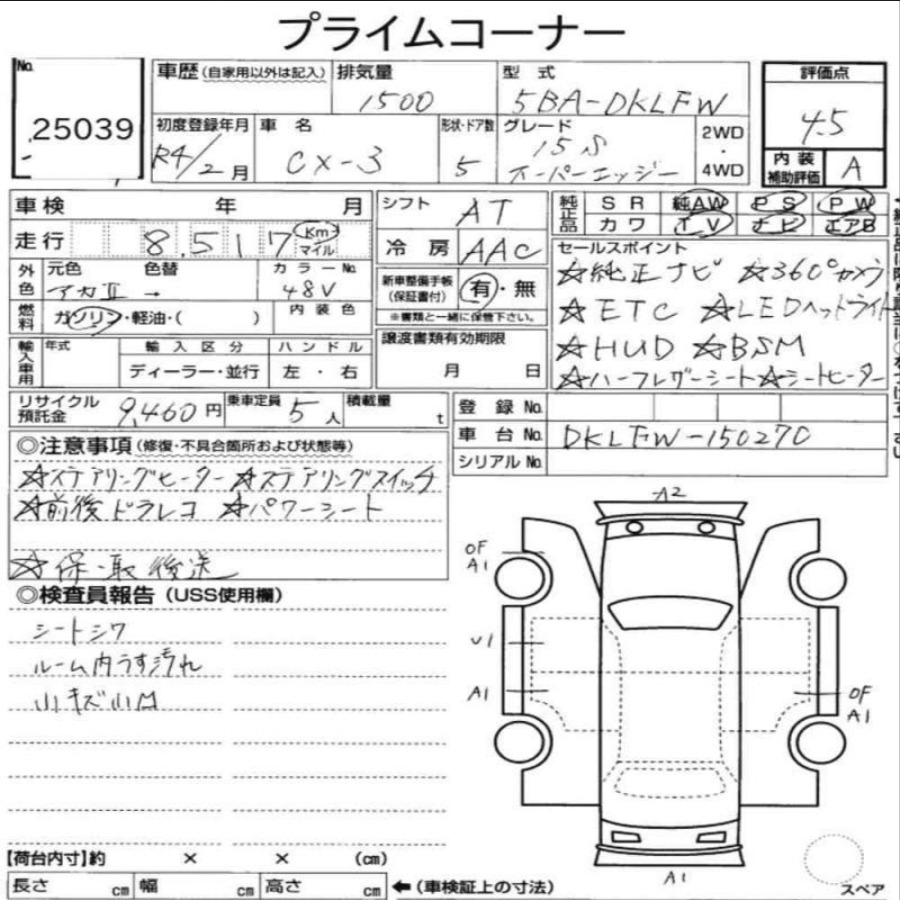 プライムコーナー
No. 25039
車歴 (自家用以外は記入)
排気量 1500
型式 5BA-DKLFW
評価点 4.5
初度登録年月 R4/2月
車名 CX-3
形状・ドア数 5
グレード 15S スーパーエッジー
2WD・4WD
内装補助評価 A
車検 年 月
走行 8,517 Km マイル
シフト AT
冷房 AAC
純正品 SR 純AW PS PW
カワ TV ナビ エアB
外色 元色 アカⅡ 色替 → カラーNo. 48V
燃料 ガソリン・軽油・( )
内装色
新車整備手帳(保証書付) 有・無
※書類と一緒に保管下さい。
セールスポイント
☆純正ナビ ☆360°カメラ
☆ETC ☆LEDヘッドライト
☆HUD ☆BSM
☆ハーフレザーシート☆シートヒーター
輸入車用 年式 輸入区分 ディーラー・並行 ハンドル 左・右
譲渡書類有効期限
月 日
リサイクル預託金 9,460円
乗車定員 5人
積載量 t
登録No.
車台No. DKLFW-150270
シリアルNo.
◎注意事項 (修復・不具合箇所および状態等)
☆ステアリングヒーター ☆ステアリングスイッチ
☆前後ドラレコ ☆パワーシート
☆保・取 後送
◎検査員報告 (USS使用欄)
シートシワ
ルーム内うす汚れ
小キズ小凹
A2
OF
A1
U1
A1
OF
A1
A1
スペア
【荷台内寸】約 × × (cm)
長さ cm 幅 cm 高さ cm ←(車検証上の寸法)